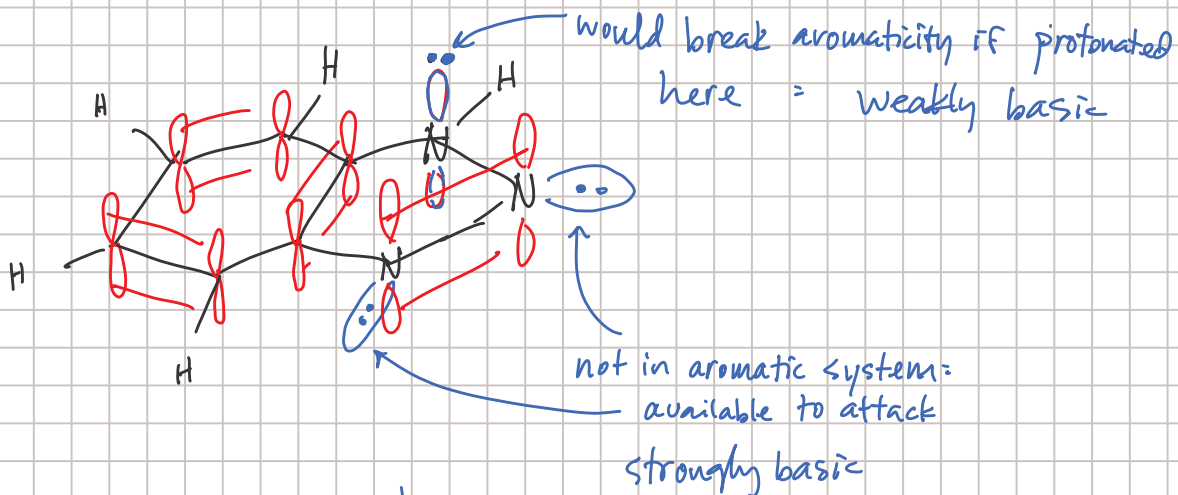 would break aromaticity if protonated
here = weakly basic
H
H
H
N
N
H
N
H
not in aromatic system=
available to attack
strongly basic